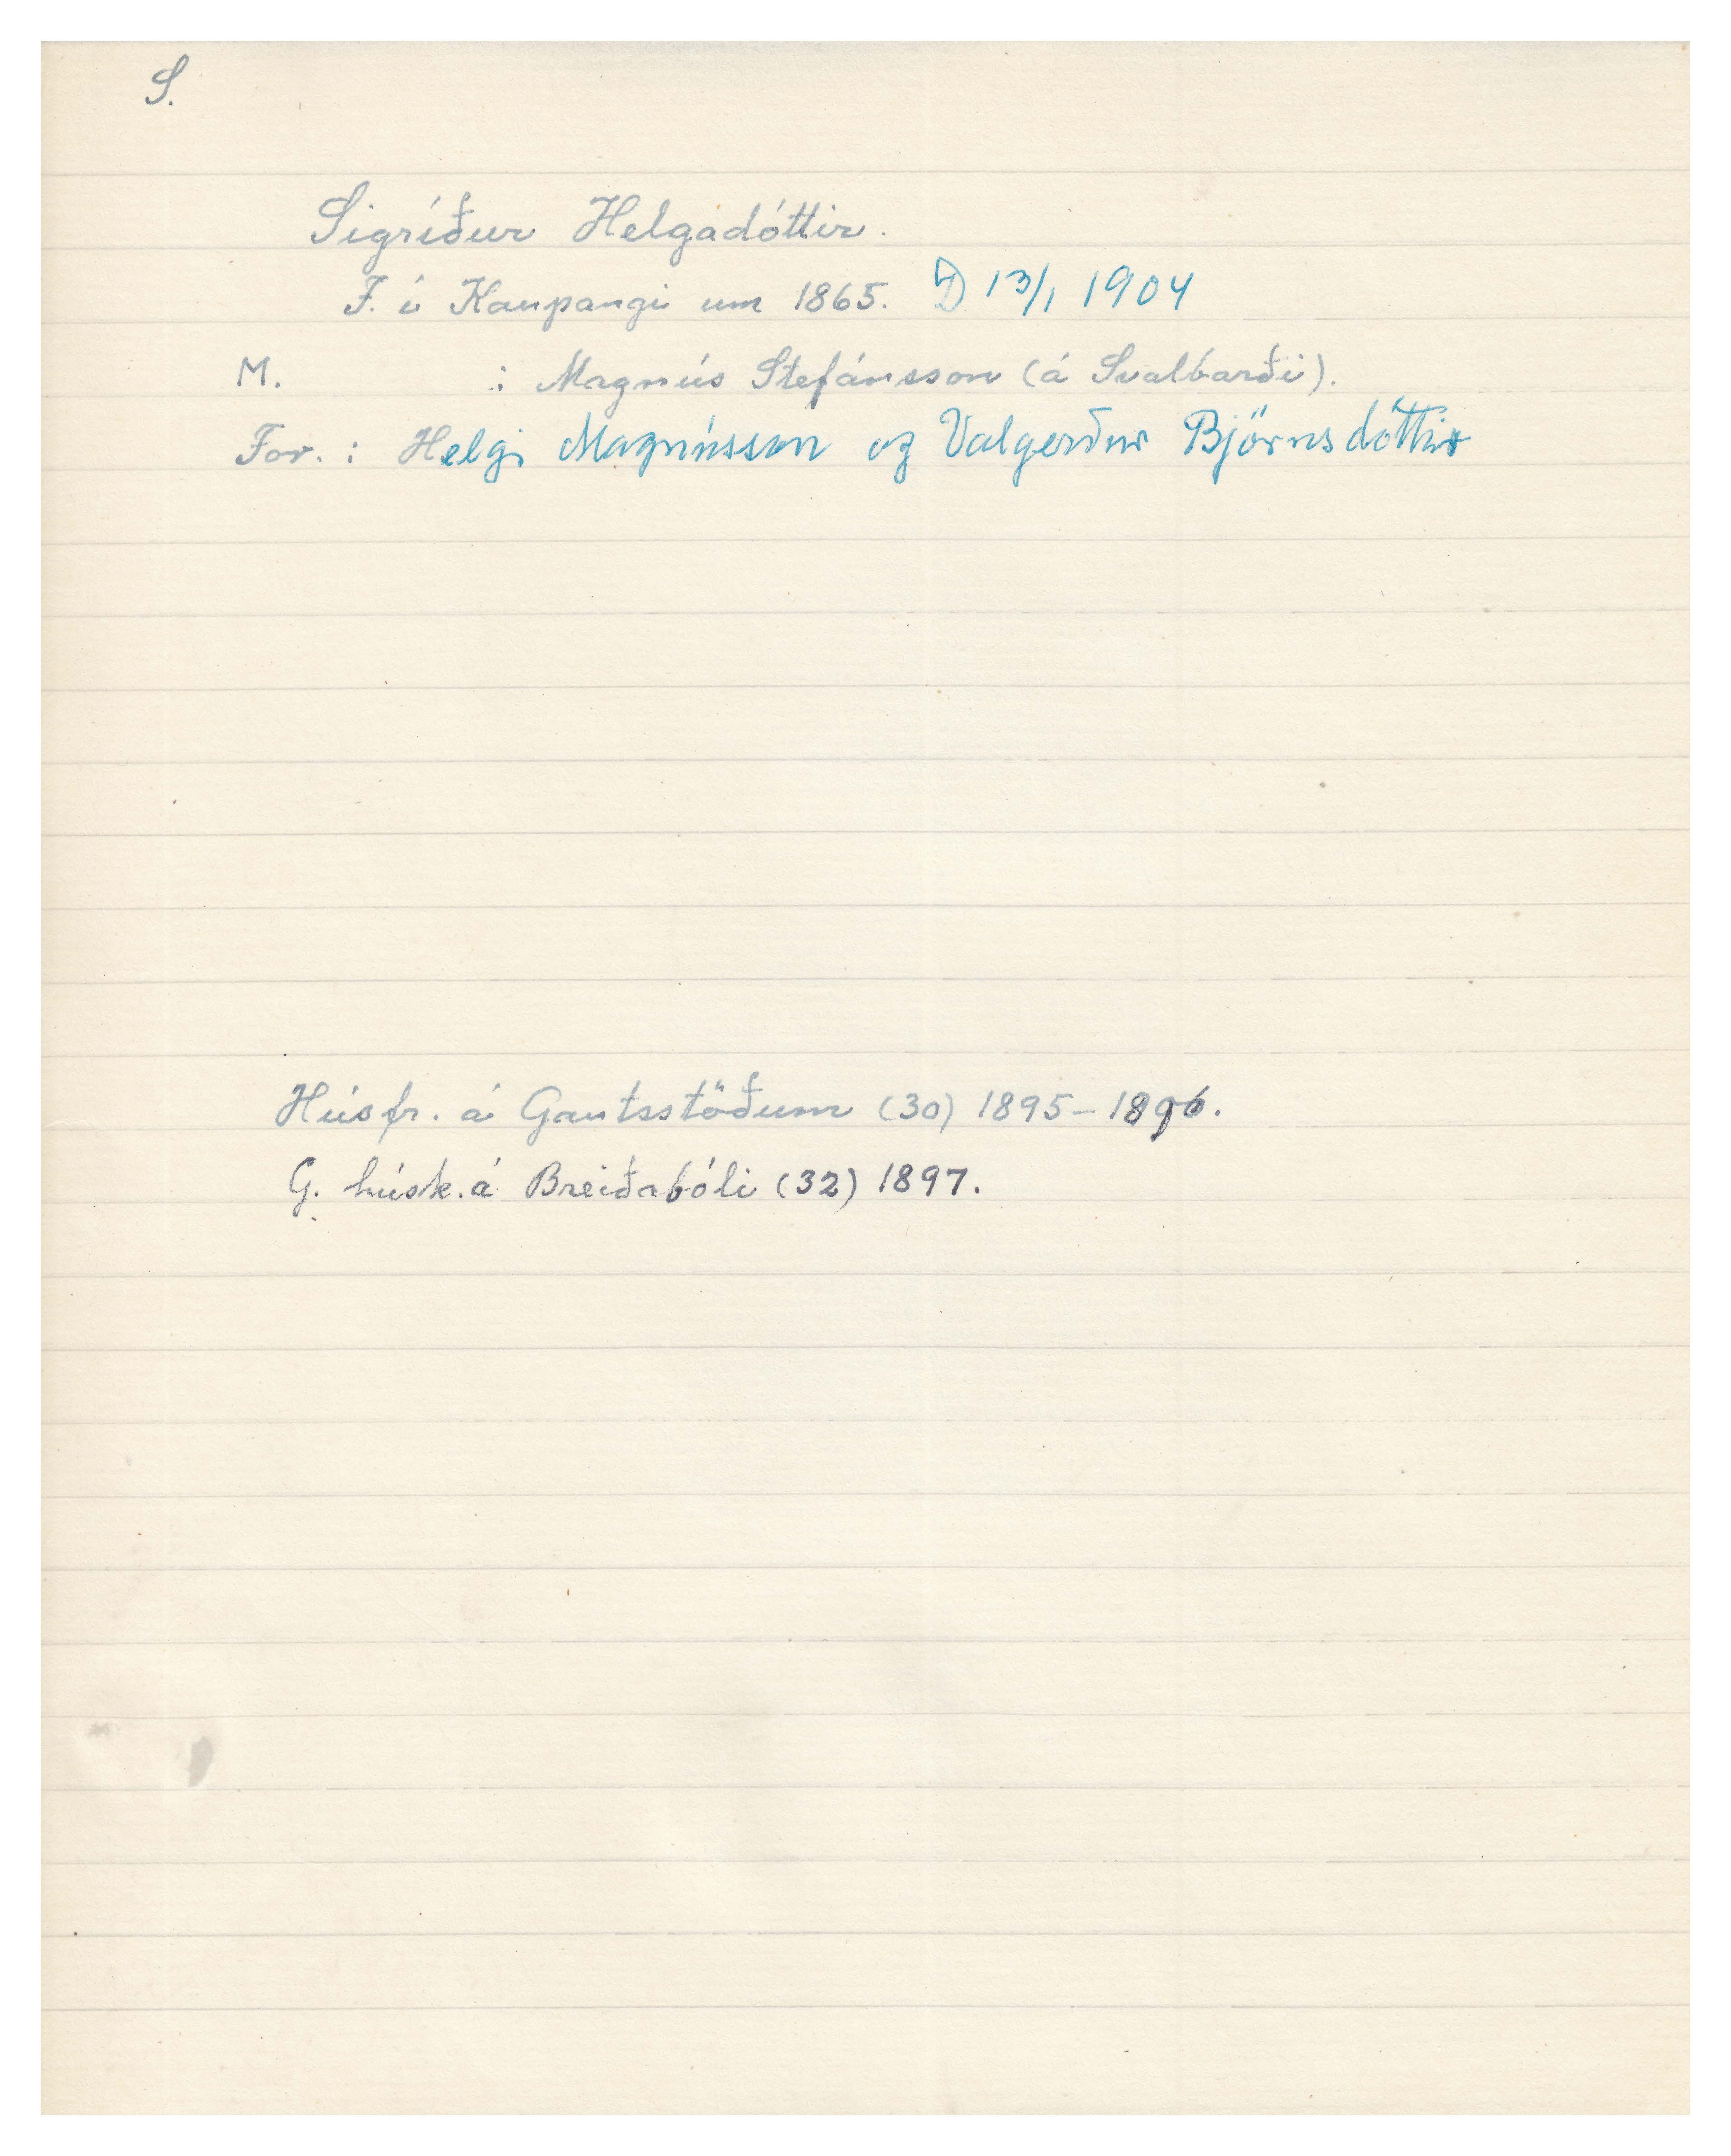 S.
Sigríður Helgadóttir.
F. í Kaupangi um 1865. D 13/1 1904
M. : Magnús Stefánsson (á Svalbarði).
For. : Helgi Magnússon og Valgerður Björnsdóttir
Húsfr. á Gautsstöðum (30) 1895-1896.
G. húsk. á Breiðabóli (32) 1897.